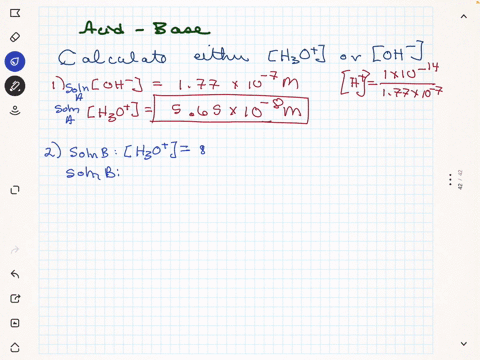 Acid - Base
Calculate either [H₃O⁺] or [OH⁻]
1) Soln A [OH⁻] = 1.77 x 10⁻⁷ M
[H⁺] = 1x10⁻¹⁴ / 1.77x10⁻⁷
Soln A [H₃O⁺] = 5.65 x 10⁻⁸ M
2) Soln B: [H₃O⁺] = 8
Soln B: